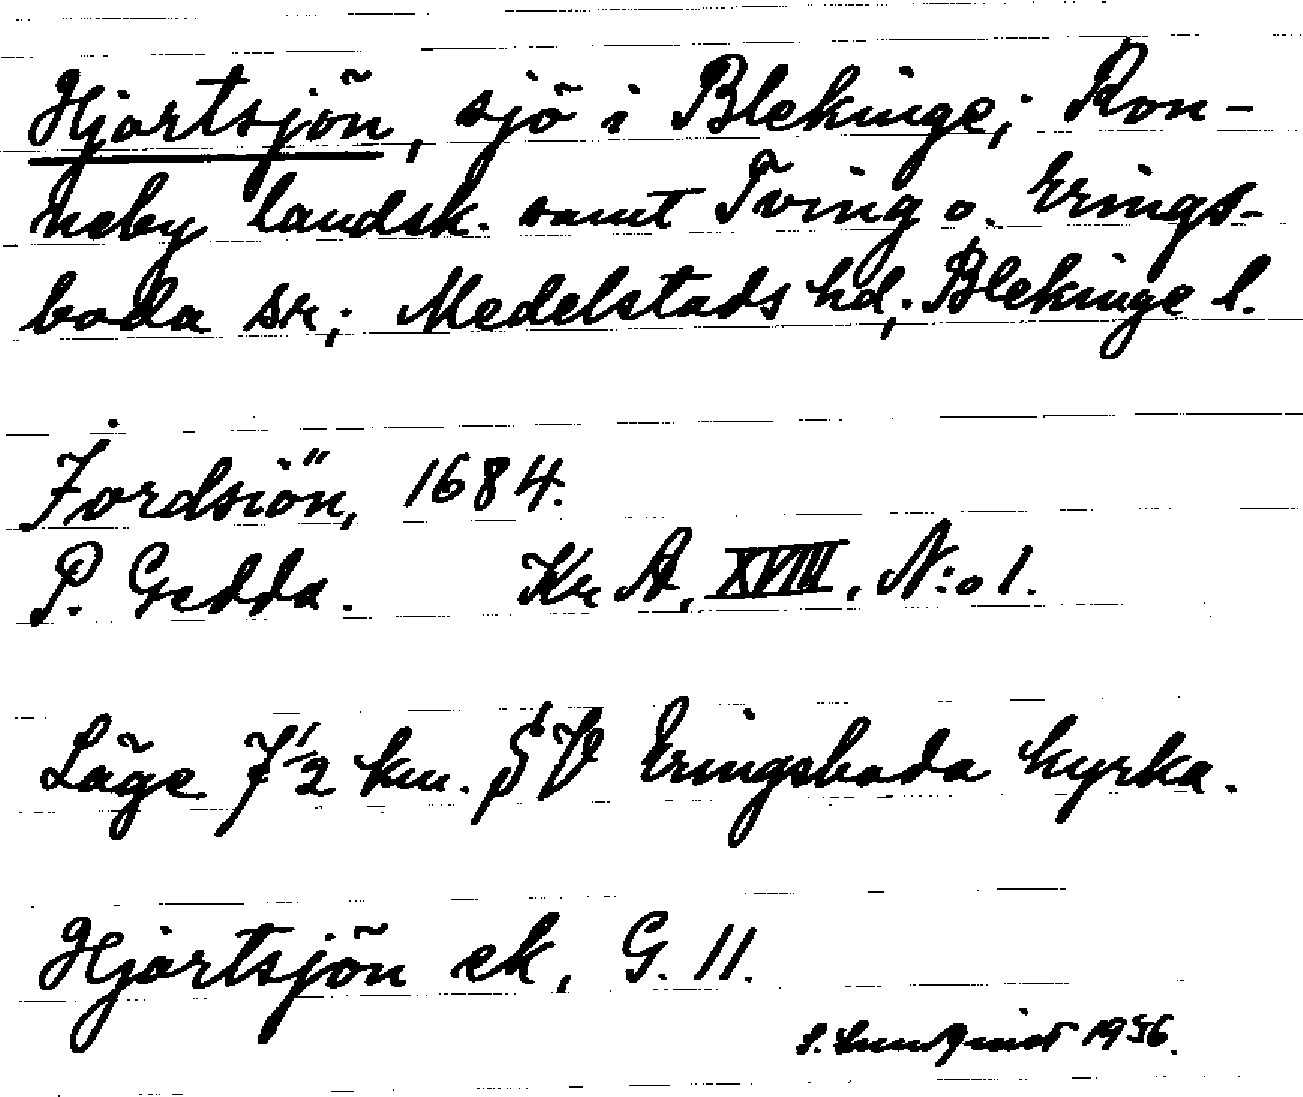 Hjortsjön, sjö i Blekinge; Ron-
neby landsk. samt Tving o. Erings-
boda sn; Medelstads hd; Blekinge l.
Jordsiön, 1684.
P. Gedda. Kr A, XVIII, N:o 1.
Läge 7½ km. SV Eringsboda kyrka.
Hjortsjön ek, G. 11.
S. Lundqvist 1956.